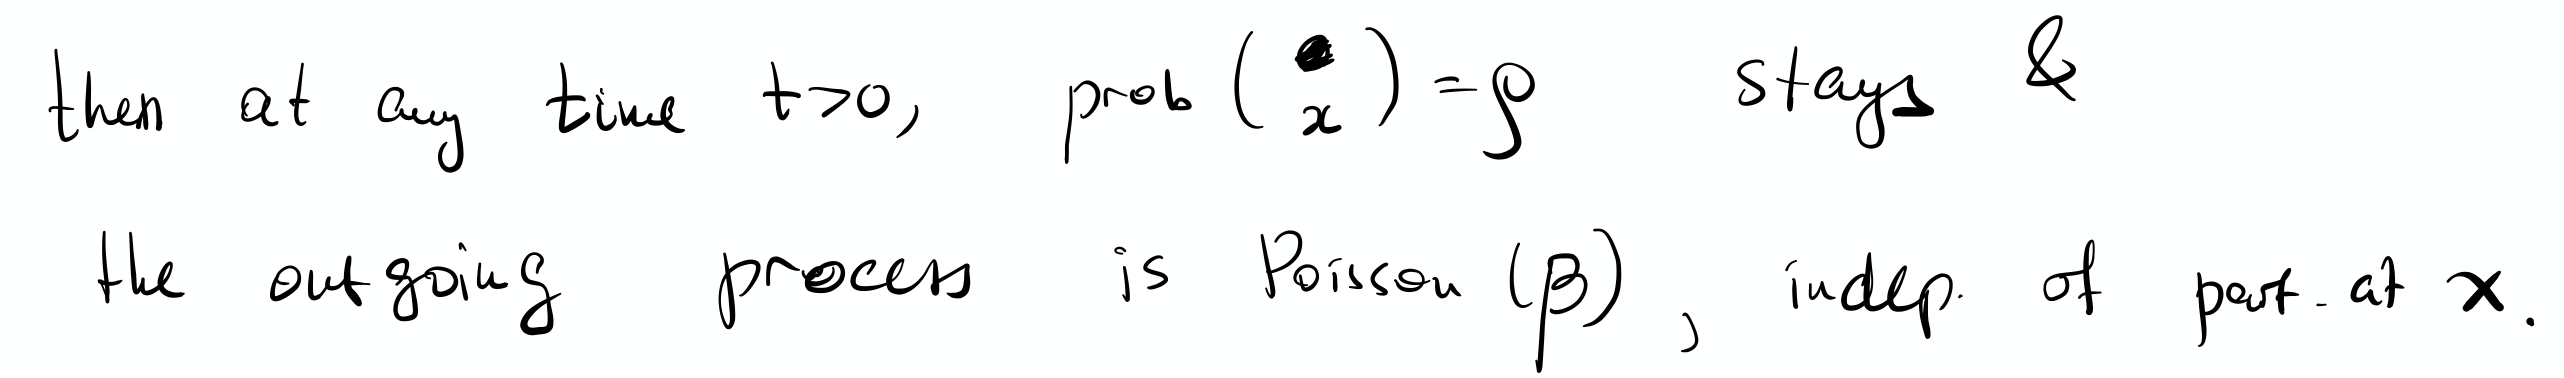 then at any time t>0, prob (● x) = ρ stays &
the outgoing process is Poisson (β), indep. of part. at x.